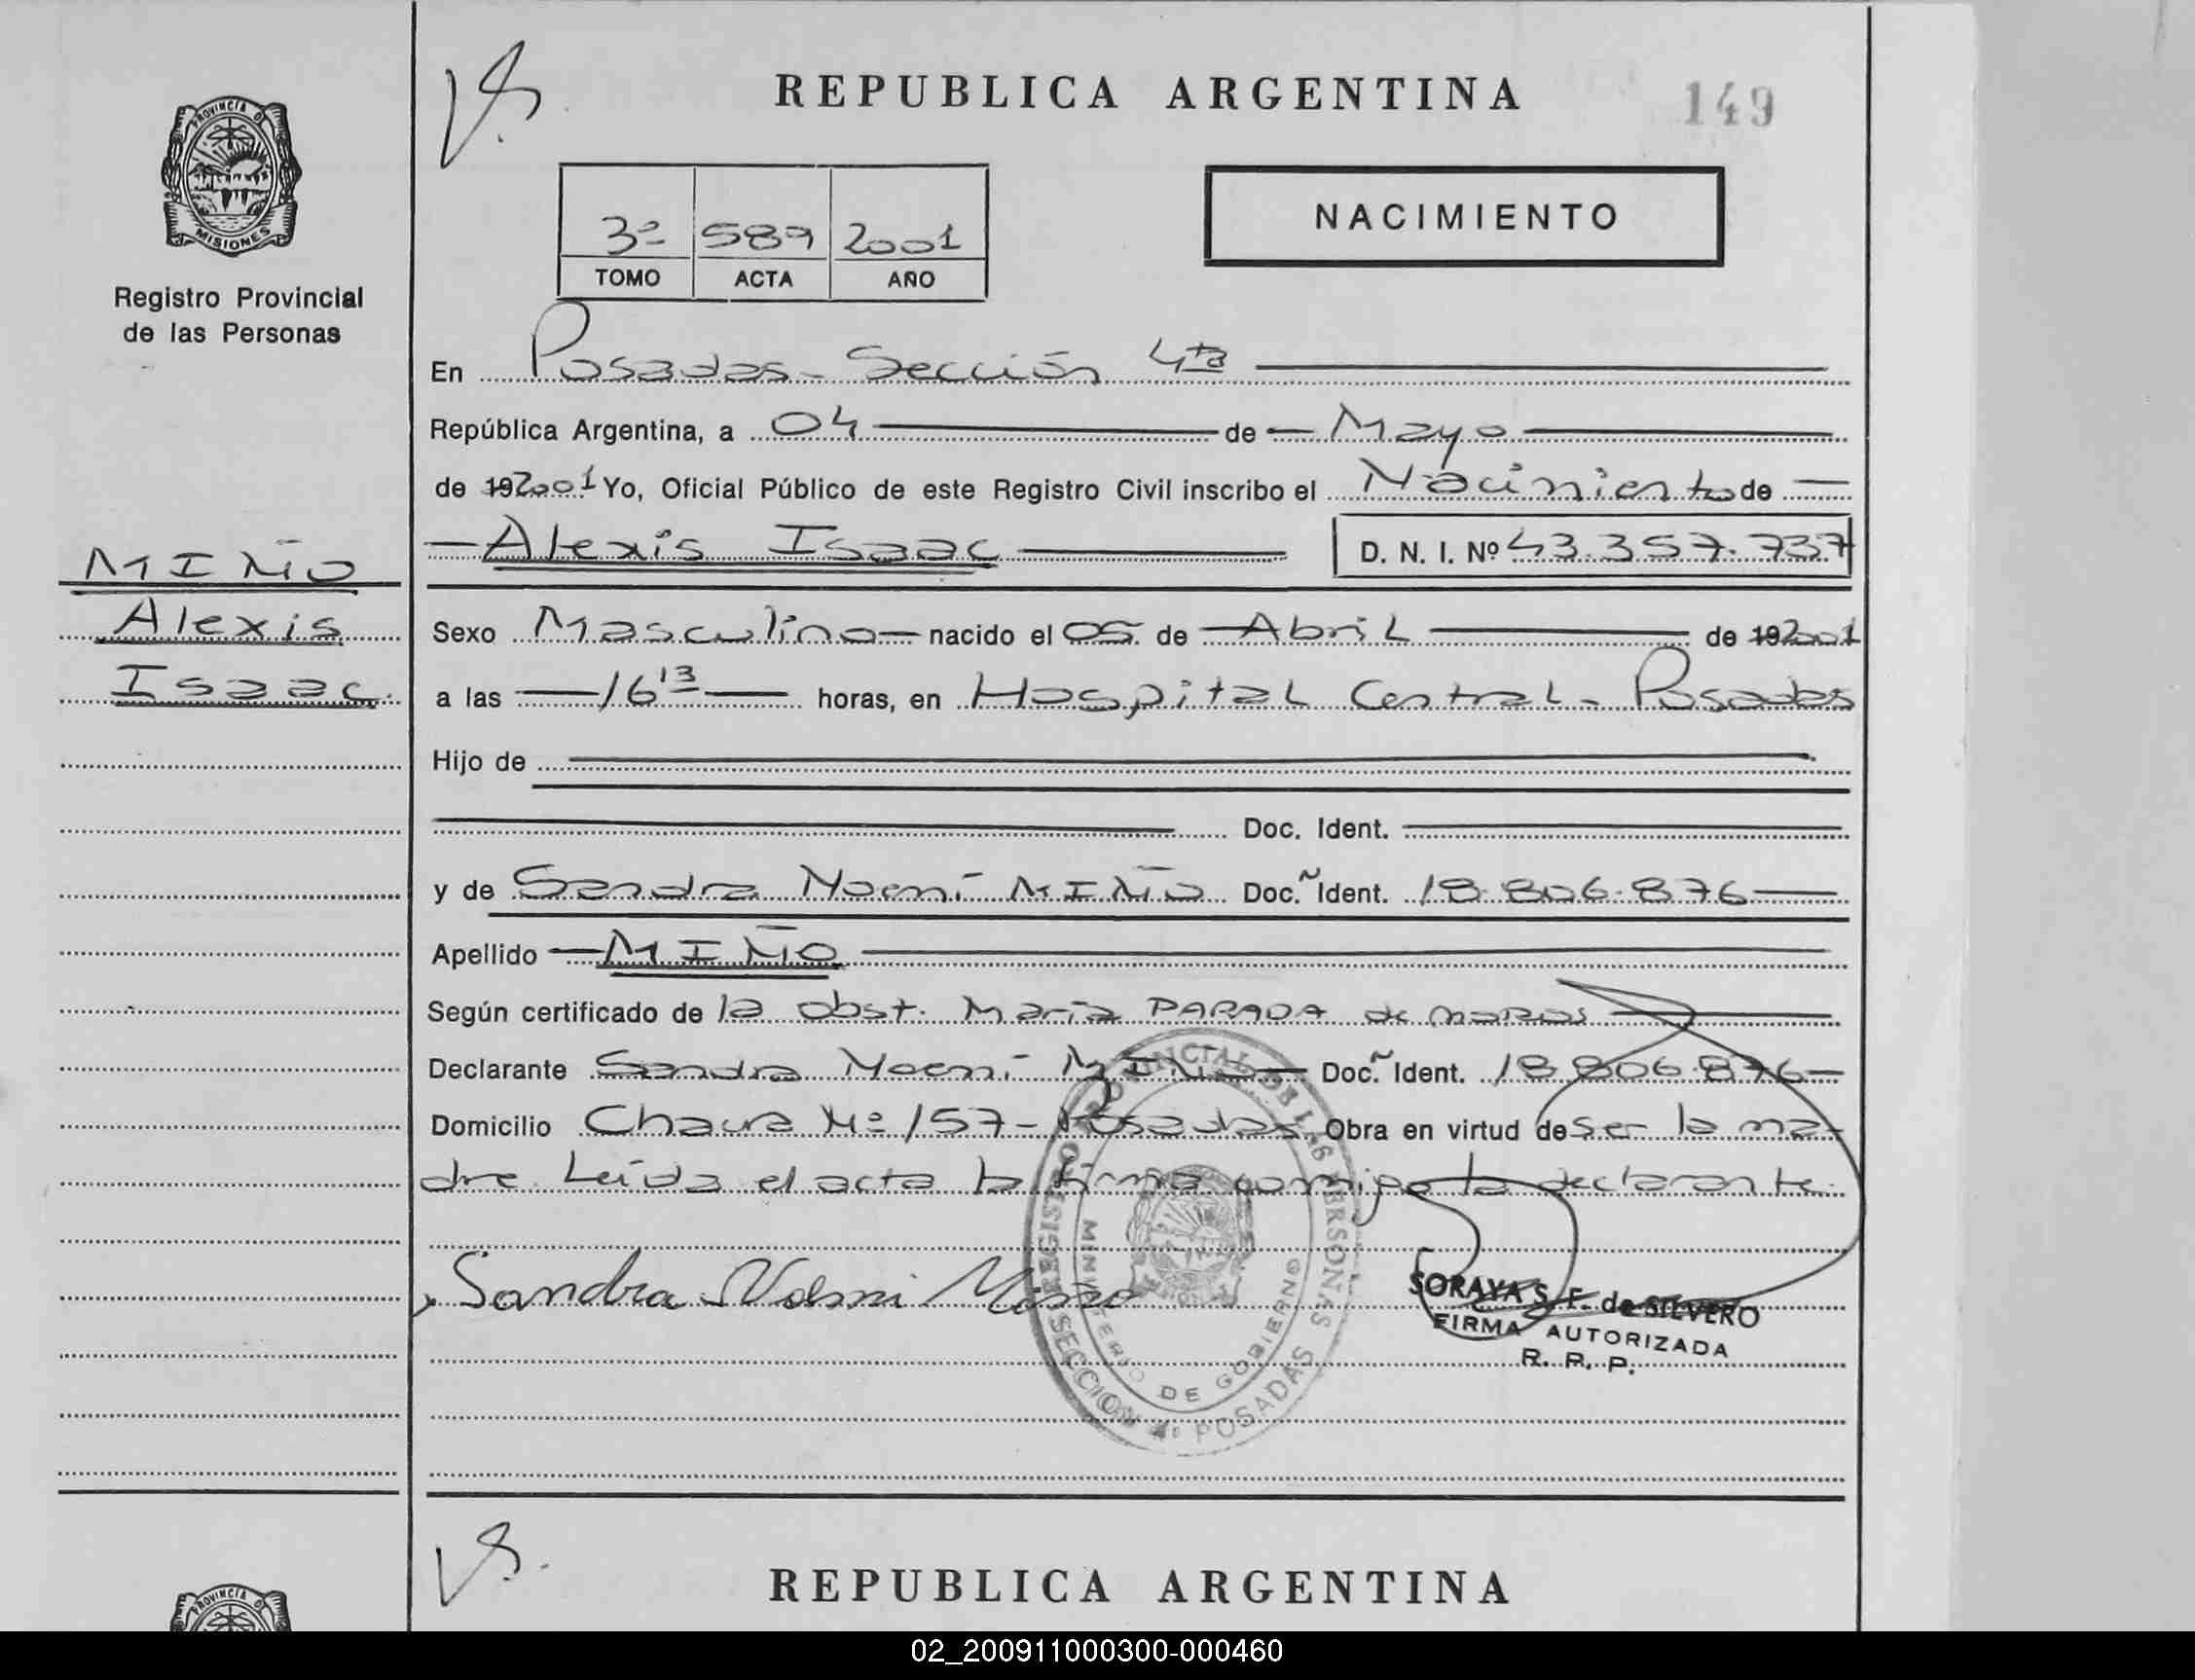 REPUBLICA ARGENTINA
149
PROVINCIA D
MISIONES
Registro Provincial
de las Personas
3º 589 2001
TOMO ACTA AÑO
NACIMIENTO
En Posadas - Sección 4ta
República Argentina, a 04 de Mayo
de 192001 Yo, Oficial Público de este Registro Civil inscribo el Nacimiento de
Alexis Isaac D. N. I. Nº 43.357.737
MIÑO
Alexis
Isaac.
Sexo Masculino nacido el 05 de Abril de 192001
a las 16 13 horas, en Hospital Central - Posadas
Hijo de
Doc. Ident.
y de Sandra Noemí MIÑO Doc. Ident. 18.806.876
Apellido MIÑO
Según certificado de la obst. María PARADA de
Declarante Sandra Noemí MIÑO Doc. Ident. 18.806.876
Domicilio Chacra Nº 157 - Posadas Obra en virtud de ser la ma-
dre. Leída el acta la firma conmigo la declarante.
Sandra Noemi Miño
REGISTRO PROVINCIAL DE LAS PERSONAS
MINISTERIO DE GOBIERNO
SECCION 4ª POSADAS
SORAYA S. F. de SILVERO
FIRMA AUTORIZADA
R. P. P.
REPUBLICA ARGENTINA
PROVINCIA D
02_200911000300-000460